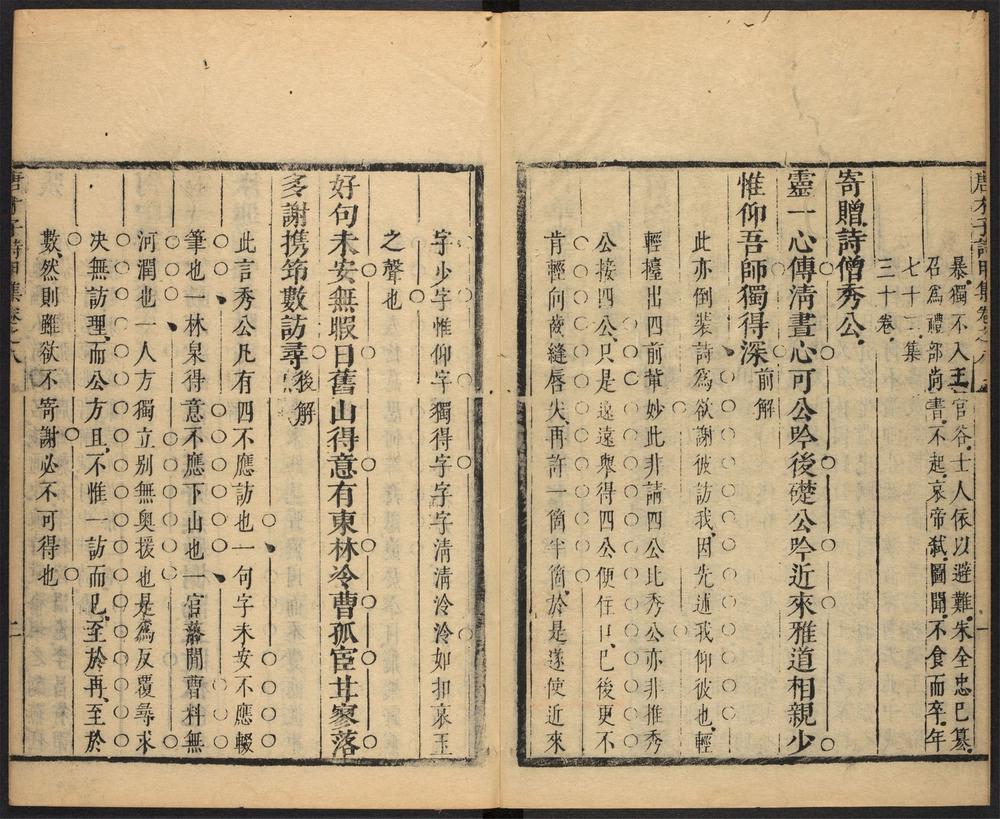 暴獨不入王官谷士人依以避難朱全忠巳篡
召爲禮部尚書不起哀帝弑圖聞不食而卒年
七十二集
三十卷
寄贈詩僧秀公
靈一心傳清晝心可公吟後礎公吟近來雅道相親少
惟仰吾師獨得深前解
此亦倒裝詩爲欲謝彼訪我因先述我仰彼也輕
輕擡出四前輩妙此非請四公比秀公亦非推秀
公接四公只是遠遠與得四公便住口巳後更不
肯輕向齒縫唇尖再許一箇半箇於是遂使近來
字少字惟仰字獨得字字字清清泠泠如扣哀玉
之聲也
好句未安無暇日舊山得意有東林冷曹孤宦甘寥落
多謝携筇數訪尋後解
此言秀公凡有四不應訪也一句字未安不應輟
筆也一林泉得意不應下山也一官落閒曹料無
河潤也一人方獨立别無奥援也是爲反覆尋求
决無訪理而公方且不惟一訪而巳至於再至於
數然則雖欲不寄謝必不可得也
唐才子詩甲集卷之八
二